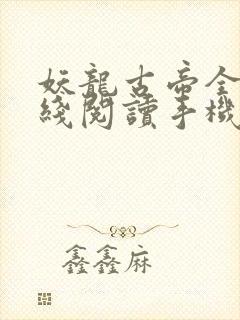 妖龍古帝全
綫閱讀手機
鑫鑫麻